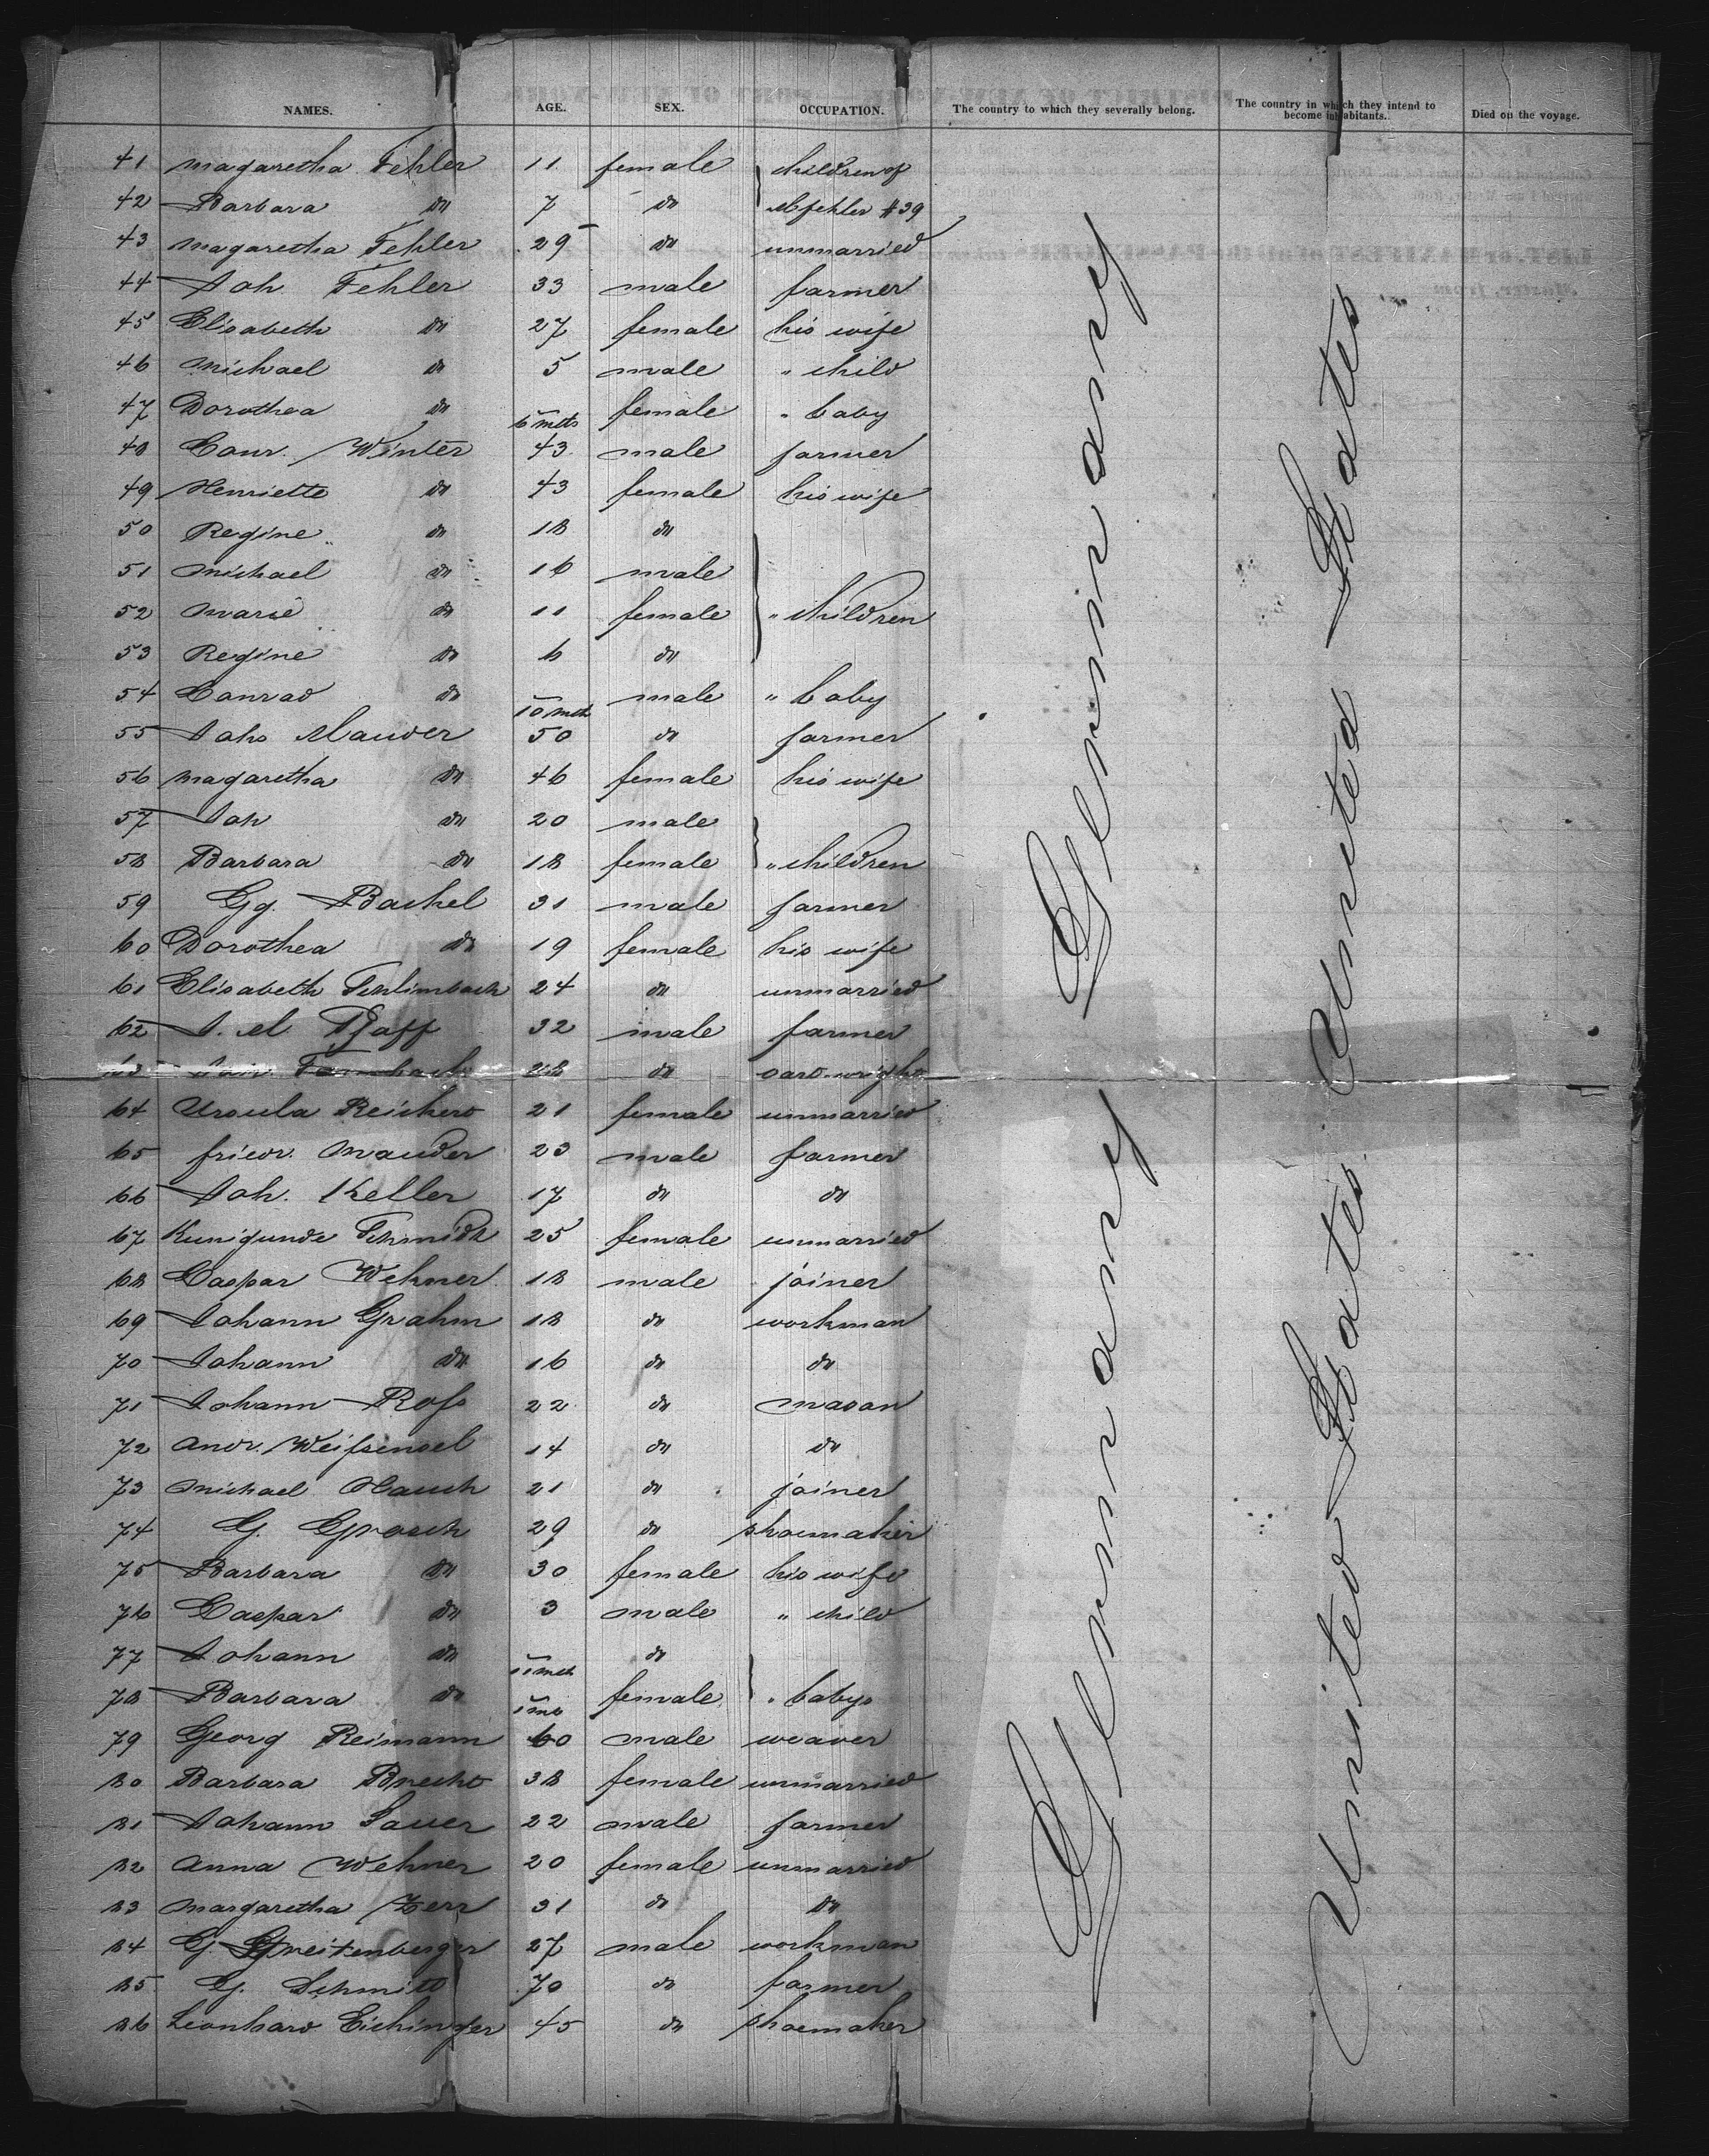 NAMES. AGE. SEX. OCCUPATION. The country to which they severally belong. The country in which they intend to become inhabitants. Died on the voyage.
41 Magaretha Fehler 11 female children of
42 Barbara do 7 do M fehler #39
43 Magaretha Fehler 29 do unmarried
44 Joh Fehler 33 male farmer
45 Elisabeth do 27 female his wife
46 Michael do 5 male " child
47 Dorothea do 6 mths female " baby
48 Conr. Winter 43 male farmer
49 Henriette do 43 female his wife
50 Regine do 18 do
51 Michael do 16 male
52 Marie do 11 female " children
53 Regine do 6 do
54 Conrad do 10 mth male " baby
55 Johs Mauder 50 do farmer
56 Magaretha do 46 female his wife
57 Joh do 20 male
58 Barbara do 18 female " children
59 Gg. Bachel 31 male farmer
60 Dorothea do 19 female his wife
61 Elisabeth 24 do unmarried
62 J. M Pfaff 32 male farmer
do cartwright
64 Ursula Reichert 21 female unmarried
65 friedr. Mauder 23 male farmer
66 Joh. Keller 17 do do
67 Kunigunde Schmidt 25 female unmarried
68 Caspar Wehner 18 male joiner
69 Johann Grahm 18 do workman
70 Johann do 16 do do
71 Johann Roß 22 do mason
72 Andr. Weißensel 14 do do
73 Michael Hauch 21 do joiner
74 G. Grosch 29 do shoemaker
75 Barbara do 30 female his wife
76 Caspar do 3 male " child
77 Johann do 11 mth do
78 Barbara do 1 mo female " babys
79 Georg Reimann 60 male weaver
80 Barbara Brecht 38 female unmarried
81 Johann Sauer 22 male farmer
82 Anna Wehner 20 female unmarried
83 Margaretha Zerr 31 do do
84 G. Greitenberger 27 male workman
85 G. Schmitt 70 do farmer
86 Leonhard Eichinger 45 do shoemaker
Germany
Germany
United States
United States